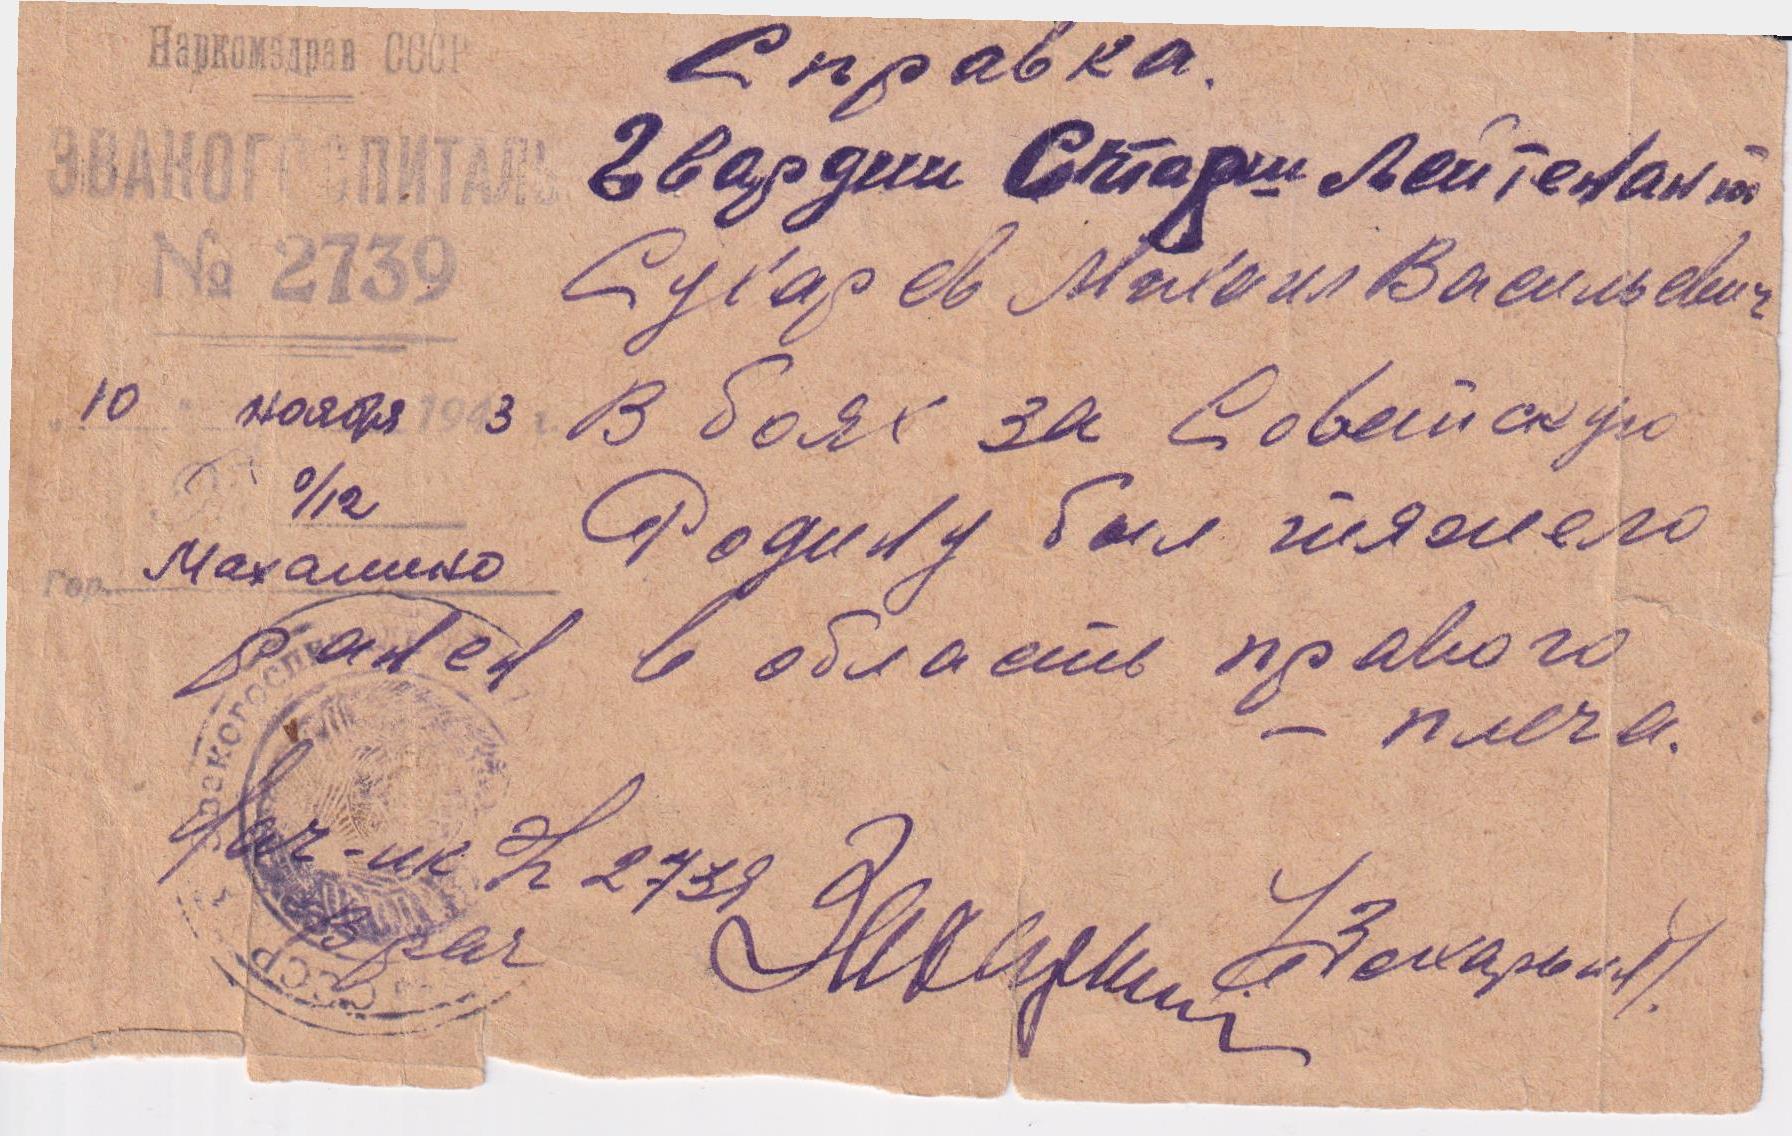 Наркомздрав СССР
ЭВАКОГОСПИТАЛЬ
№ 2739
10 ноября 1943 г.
0/12
Гор. Махалино
Справка.
Гвардии Старш Лейтенант
Сухарев Михаил Васильевич
В боях за Советскую
Родину был тяжело
ранен в область правого
– плеча.
Нач-ик Э/г 2739
Врач
/Захарьин/.
Эвакогоспит
СССР